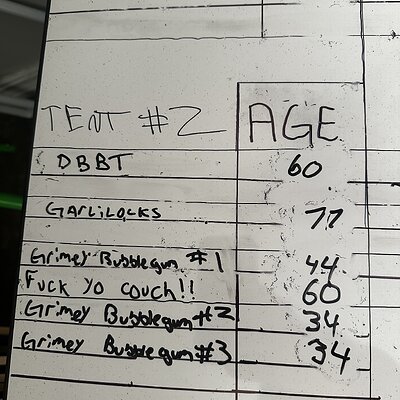 TENT #2 AGE
DBBT 60
GARLILOCKS 77
Grimey Bubblegum #1 44
Fuck Yo couch!! 60
Grimey Bubblegum #2 34
Grimey Bubblegum #3 34